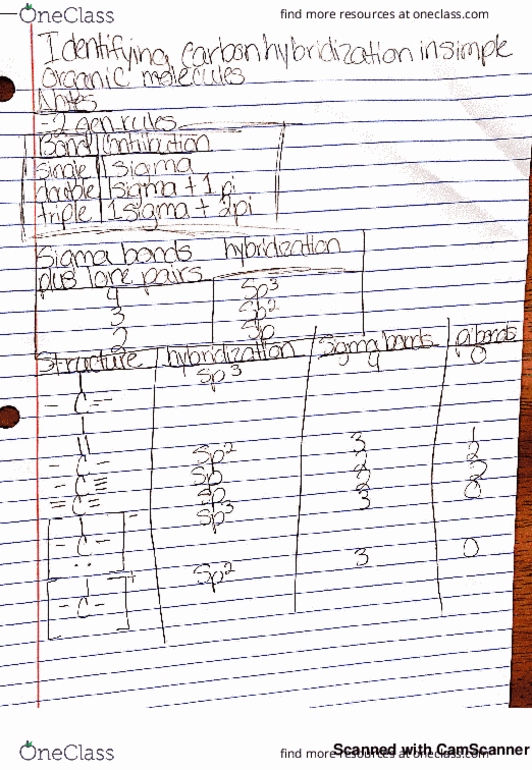 OneClass
find more resources at oneclass.com
Identifying carbon hybridization in simple
organic molecules
Notes
-2 gen rules
Bond Contribution
single 1 sigma
double 1 sigma + 1 pi
triple 1 sigma + 2pi
Sigma bonds hybridization
plus lone pairs
4 sp³
3 sp²
2 sp
Structure hybridization sigma bonds pi bonds
-C- sp³ 4 0
-C- sp² 3 1
-C≡ sp 2
=C= sp 2 2
[-C-]- sp³ 3 0
[-C-]+ sp² 3 0
Scanned with CamScanner
OneClass
find more resources at oneclass.com